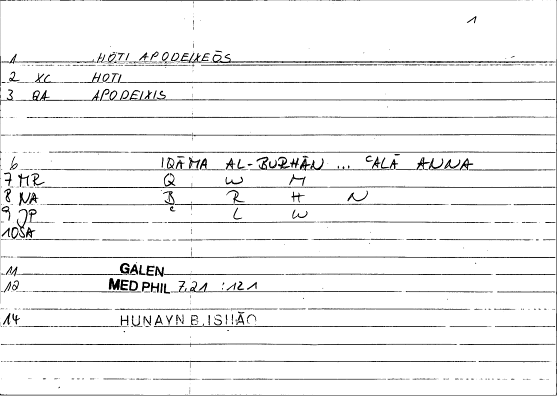 1
1 HOTI APODEIXEŌS
2 XC HOTI
3 QA APODEIXIS
6 IQĀMA AL-BURHĀN ... ᶜALĀ ANNA
7 MR Q W M
8 NA B R H N
9 JP ᶜ L W
10 SA
11 GALEN
12 MED PHIL 7.21 :121
14 ḤUNAYN B. ISḤĀQ